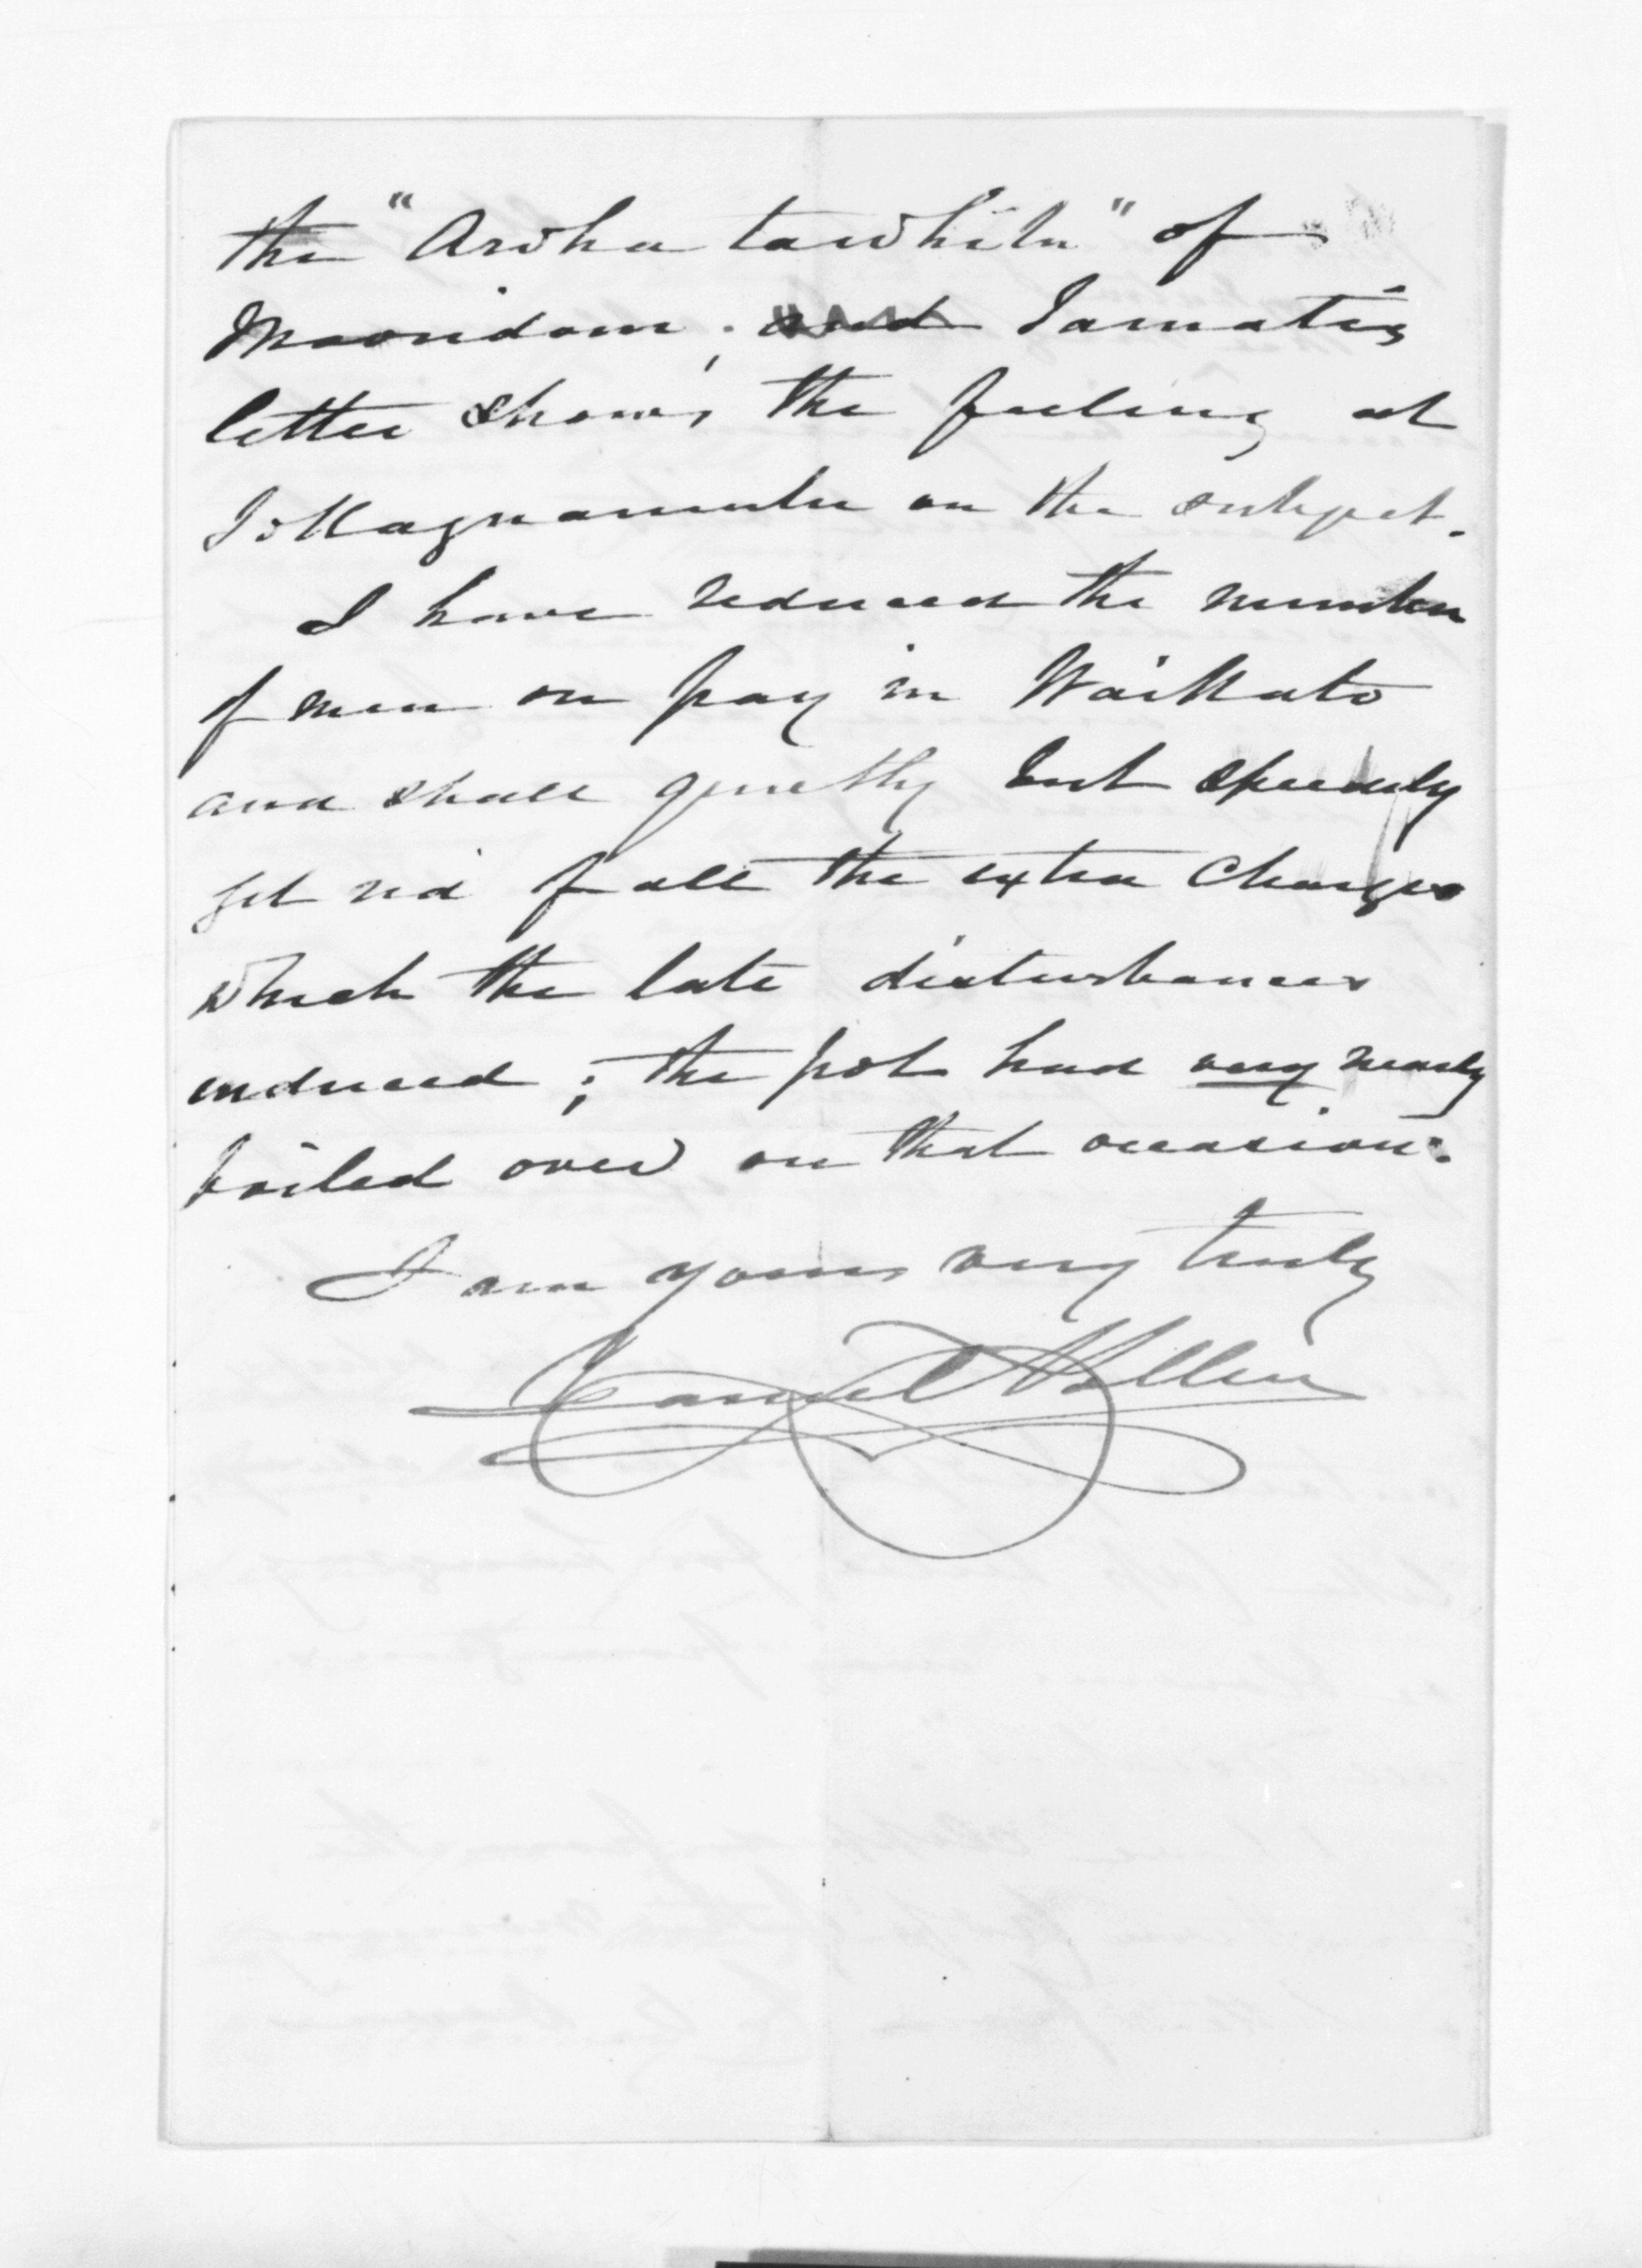 the "Aroha tawhito" of
Maoridom; and Tamati's
letter shows the feeling at
Tokangamutu on the subject.
I have reduced the number
of men on pay in Waikato
and shall quietly but speedily
get rid of all the extra charges
which the late disturbances
induced; the pot had very nearly
boiled over on that occasion.
I am yours very truly
Daniel Pollen